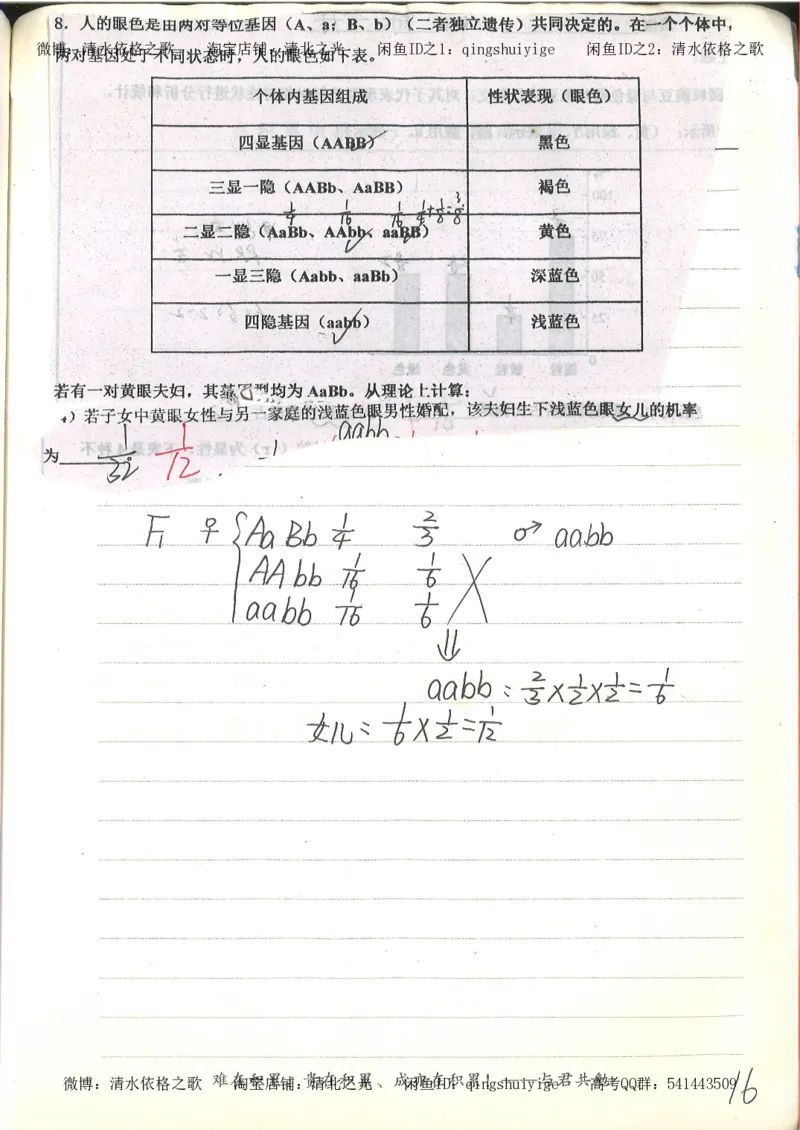 8. 人的眼色是由两对等位基因（A、a；B、b）（二者独立遗传）共同决定的。在一个个体中，
微博：清水依格之歌 淘宝店铺：清北之光 闲鱼ID之1：qingshuiyige 闲鱼ID之2：清水依格之歌
两对基因处于不同状态时，人的眼色如下表。
个体内基因组成 性状表现（眼色）
四显基因（AABB） 黑色
三显一隐（AABb、AaBB） 褐色
1/4 1/16 1/16 1/4+1/8=3/8
二显二隐（AaBb、AAbb、aaBB） 黄色
一显三隐（Aabb、aaBb） 深蓝色
四隐基因（aabb） 浅蓝色
若有一对黄眼夫妇，其基因型均为 AaBb。从理论上计算：
4）若子女中黄眼女性与另一家庭的浅蓝色眼男性婚配，该夫妇生下浅蓝色眼女儿的机率
aabb
为 1/32 1/12
F₁ ♀ { AaBb 1/4 2/3 ♂ aabb
AAbb 1/16 1/6
aabb 1/16 1/6
⇓
aabb：2/3×1/2×1/2=1/6
女儿=1/6×1/2=1/12
微博：清水依格之歌 淘宝店铺：清北之光 闲鱼ID：qingshuiyige 高考QQ群：541443509
难在积累、贵在积累、成功在积累！——与君共勉
16